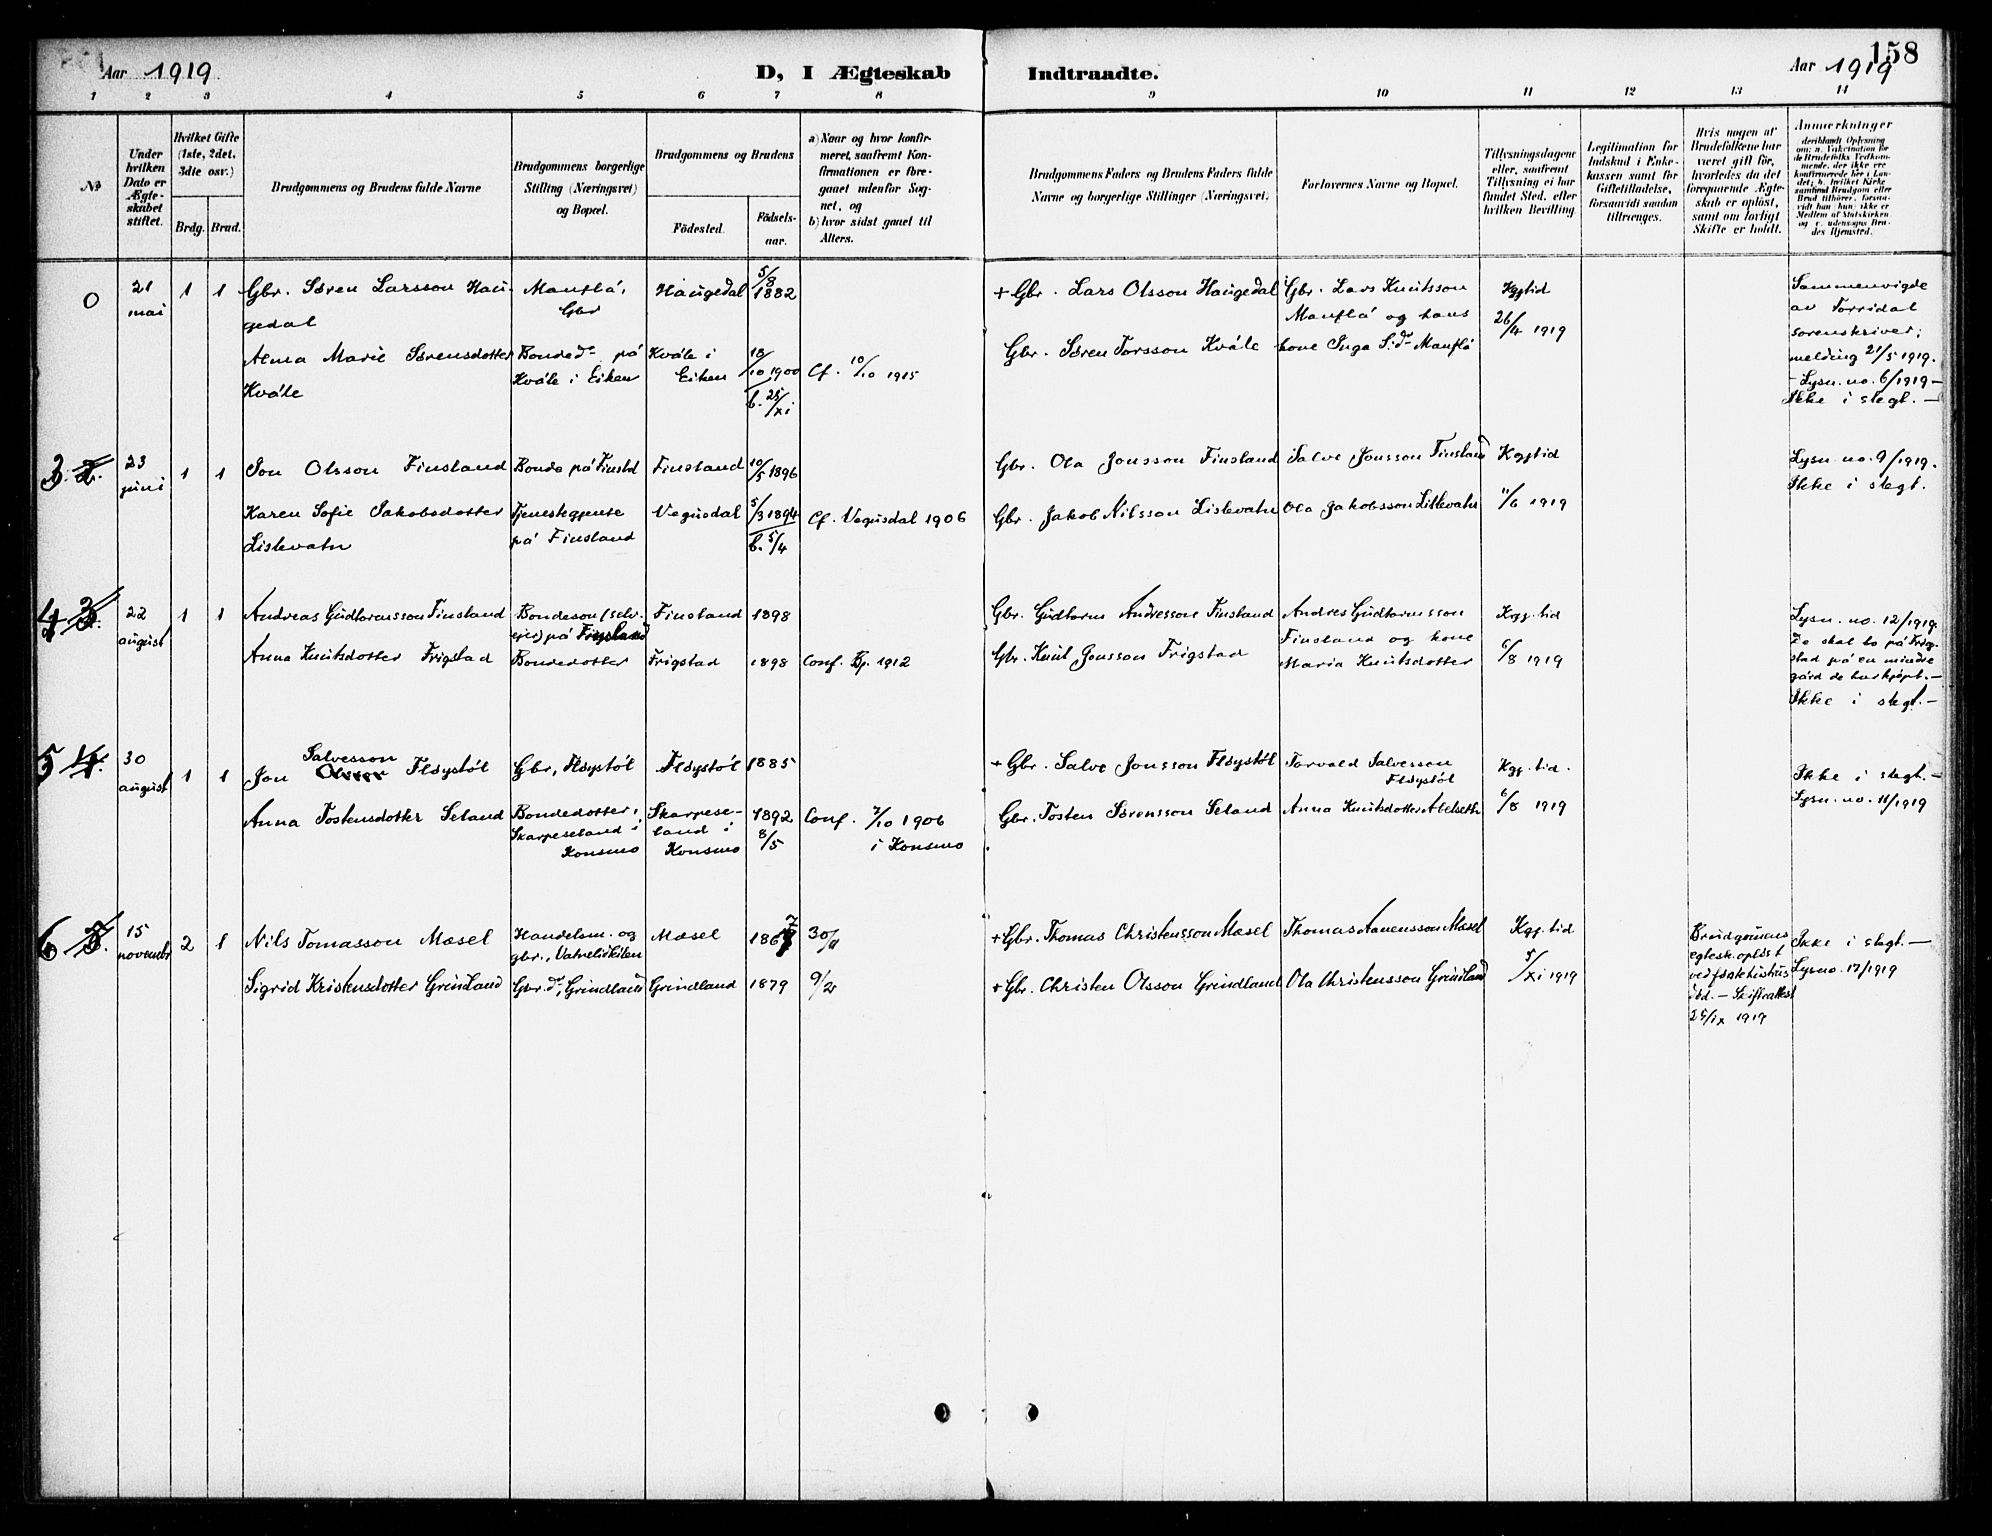 Aar 1919
D, I Ægteskab
Indtraadte.
Aar 1919
158
1 2 3 4 5 6 7 8 9 10 11 12 13 14
No
Under hvilken Dato er Ægteskabet stiftet.
Hvilket Gifte (1ste, 2det, 3die osv.)
Brdg. Brud.
Brudgommens og Brudens fulde Navne
Brudgommens borgerlige Stilling (Næringsvei) og Bopæl.
Brudgommens og Brudens
Födested.
Födselsaar.
a) Naar og hvor konfirmeret, saafremt Konfirmationen er foregaaet udenfor Sognet, og
b) hvor sidst gaaet til Alters.
Brudgommens Faders og Brudens Faders fulde Navne og borgerlige Stillinger (Næringsvei)
Forlovernes Navne og Bopæl.
Tillysningsdagene eller, saafremt Tillysning ei har fundet Sted, efter hvilken Bevilling
Legitimation for Indskud i Enkekassen samt for Giftetilladelse, forsaavidt saadan tiltrænges.
Hvis nogen af Brudefolkene har været gift för, hvorledes da det foregaaende Ægteskab er oplöst, samt om lovligt Skifte er holdt.
Anmerkninger
0 21 mai 1 1 Gbr. Søren Larsson Haugedal Mauflå, Gbr Haugedal 5/8 1882 + Gbr. Lars Olsson Haugedal Gbr. Lars Knutsson Mauflå og hans kone Inga S.dr Mauflå Kggtid 26/4 1919
Sammenvigde av Torridal sorenskriver; melding 21/5 1919. - Lysn. no. 6/1919 - Ikke i slegt. -
Alma Marie Sørensdotter Kvåle Bonded. på Kvåle i Eiken Kvåle i Eiken 18/10 1900 b. 25/xi Cf. 10/10 1915 Gbr. Søren Torsson Kvåle
3. 2. 23 juni 1 1 Jon Olsson Finsland Bonde på Finsld Finsland 10/5 1896 Gbr. Ola Jonsson Finsland Salve Jonsson Finsland Kggtid 11/6 1919 Lysn. no. 9/1919. Ikke i slegt.
Karen Sofie Jakobsdotter Lislevatn Tjenestegjente på Finsland Vegusdal 5/3 1894 b. 5/4 Cf. Vegusdal 1906 Gbr. Jakob Nilsson Lislevatn Ola Jakobsson Lislevatn
4 3. 22 august 1 1 Andreas Gudtormsson Finsland Bondeson (selvejer) på Frigstad Finsland 1898 Gbr. Gudtorm Andresson Finsland Andres Gudtormsson Finsland og kone Maria Knutsdotter Kgg. tid 6/8 1919
Lysn. no. 12/1919. De skal bo på Frigstad på en mindre gård de har kjøpt. - Ikke i slegt. -
Anna Knutsdotter Frigstad Bondedotter Frigstad 1898 Conf. Bj. 1912 Gbr. Knut Jonsson Frigstad
5 4. 30 august 1 1 Jon Salvesson Olsson Fløystøl Gbr., Fløystøl Fløystøl 1885 + Gbr. Salve Jonsson Fløystøl Torvald Salvesson Fløystøl Kgg. tid. 6/8 1919 Ikke i slegt. - Lysn. no. 11/1919
Anna Tostensdotter Seland Bondedotter, Skarpeseland i Konsmo Skarpeseland i Konsmo 1892 8/5 Conf. 7/10 1906 i Konsmo Gbr. Tosten Sørensson Seland Anna Knutsdotter Abelseth
6 5. 15 novembr 2 1 Nils Tomasson Mæsel Handelsm. og gbr., Vatnelidkilen Mæsel 1867 30/11 + Gbr. Thomas Christensson Mæsel Thomas Aanensson Mæsel Kgg. tid 5/xi 1919 Brudgomens egtesk. opløst ved død. - Skifteattest 25/ix 1919 Ikke i slegt. - Lysn no. 17/1919
Sigrid Kristensdotter Grindland Gbr.d., Grindland Grindland 1879 9/21 + Gbr. Christen Olsson Grindland Ola Christensson Grindland